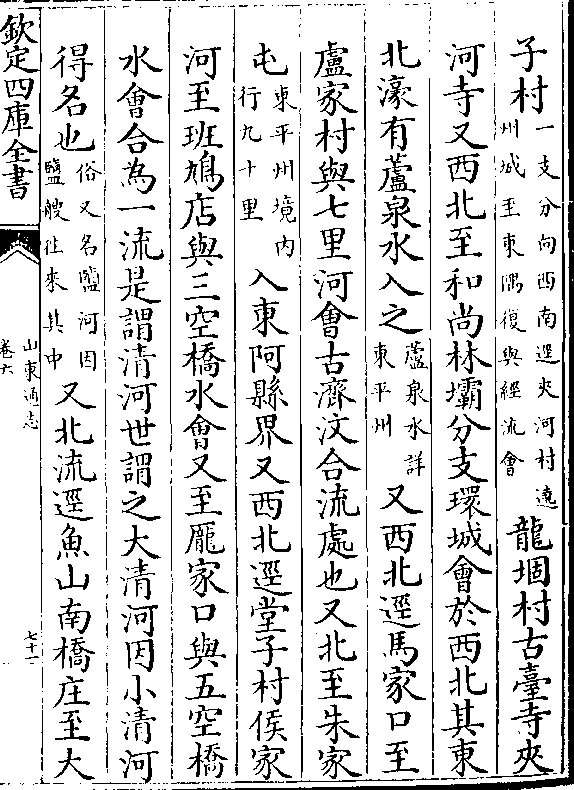 子村一支分向西南逕夾河村遶州城至東隅復與經流會龍堌村古臺寺夾
河寺又西北至和尚林壩分支環城會於西北其東
北濠有蘆泉水入之蘆泉水詳東平州又西北逕馬家口至
盧家村與七里河會古濟汶合流處也又北至朱家
屯東平州境内行九十里入東阿縣界又西北逕堂子村侯家
河至班鳩店與三空橋水會又至龎家口與五空橋
水會合為一流是謂清河世謂之大清河因小清河
得名也俗又名鹽河因鹽艘往來其中又北流逕魚山南橋庄至大
欽定四庫全書
山東通志
卷六
七十一